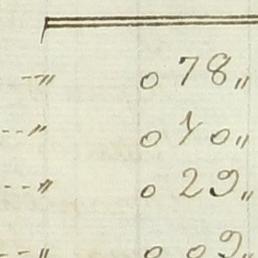 --〃 0 78〃
--〃 0 40〃
--〃 0 29〃
--〃 0 09〃